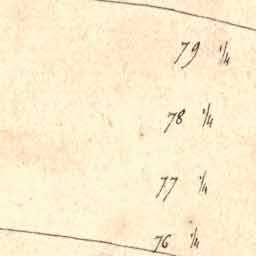 79 ¼
78 ¼
77 ¼
76 ¼